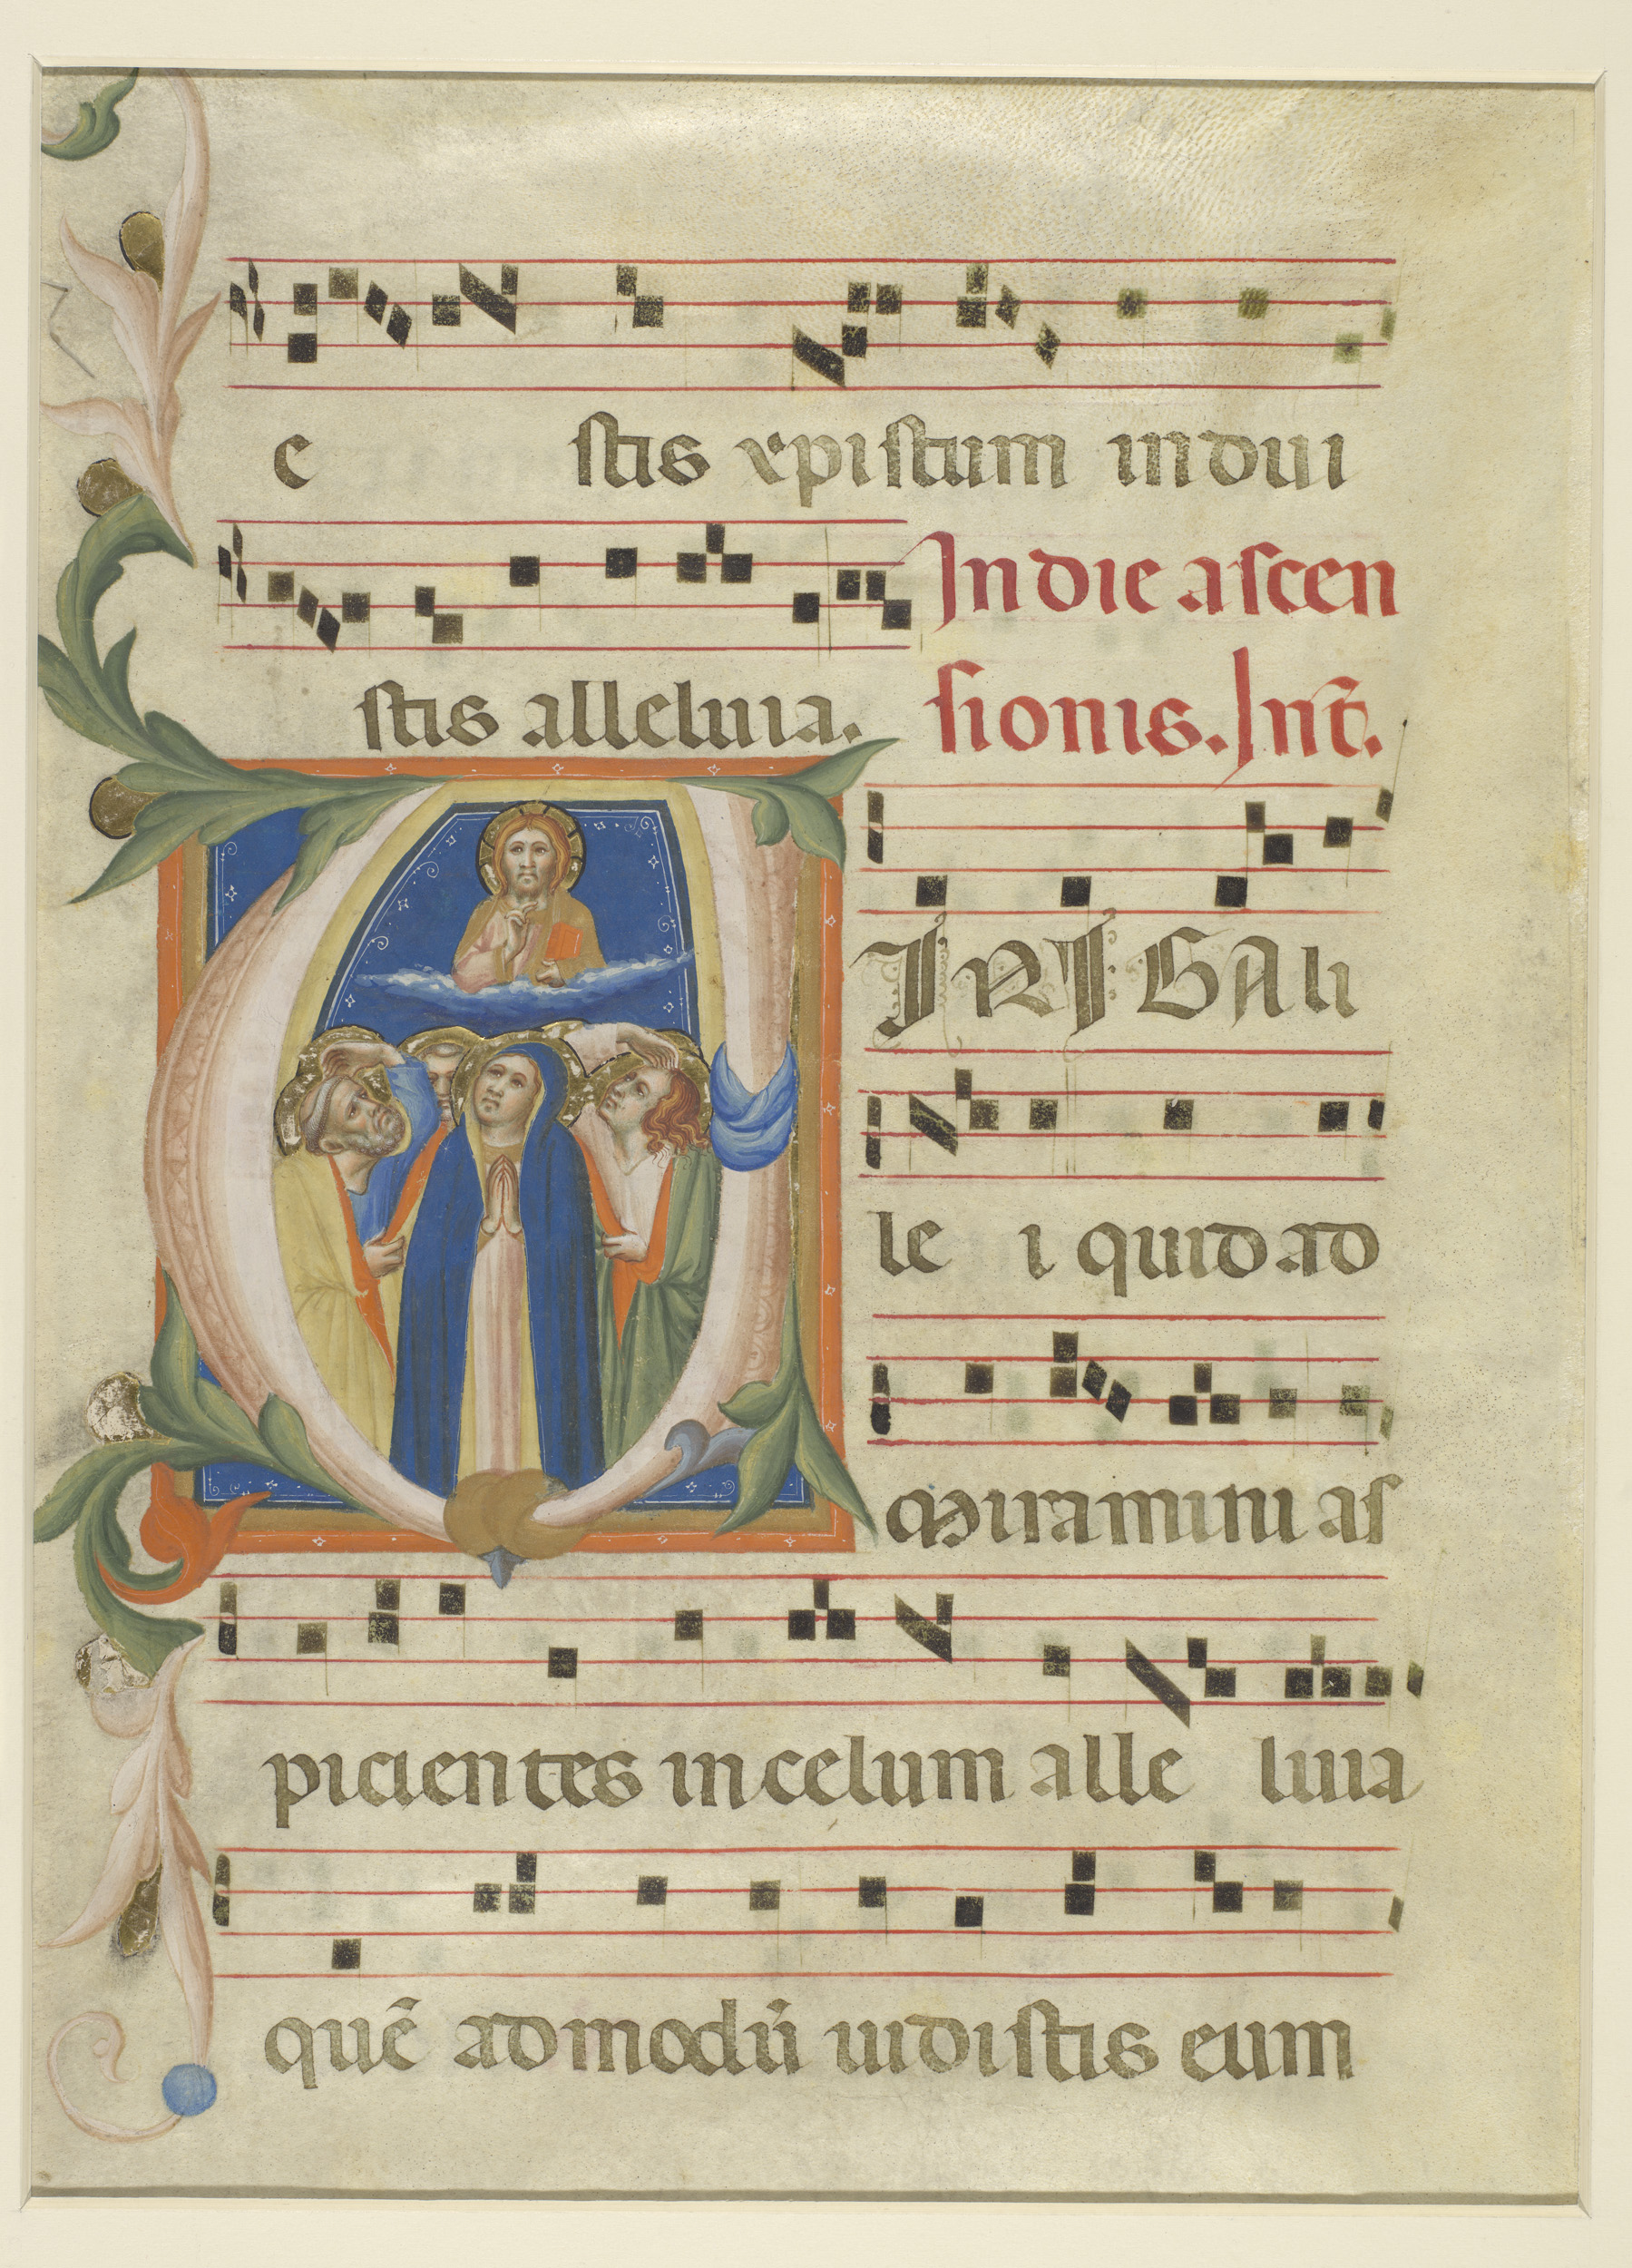 e stis xpistum indui
stis alleluia. In die ascen
sionis. Int̃.
VIRI GALI
le i quid ad
miramini as
picientes in celum alle luia
quē admodū uidistis eum